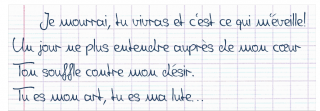 Je mourrai, tu vivras et c'est ce qui m'éveille!
Un jour ne plus entendre auprès de mon cœur
Ton souffle contre mon désir.
Tu es mon art, tu es ma lute...